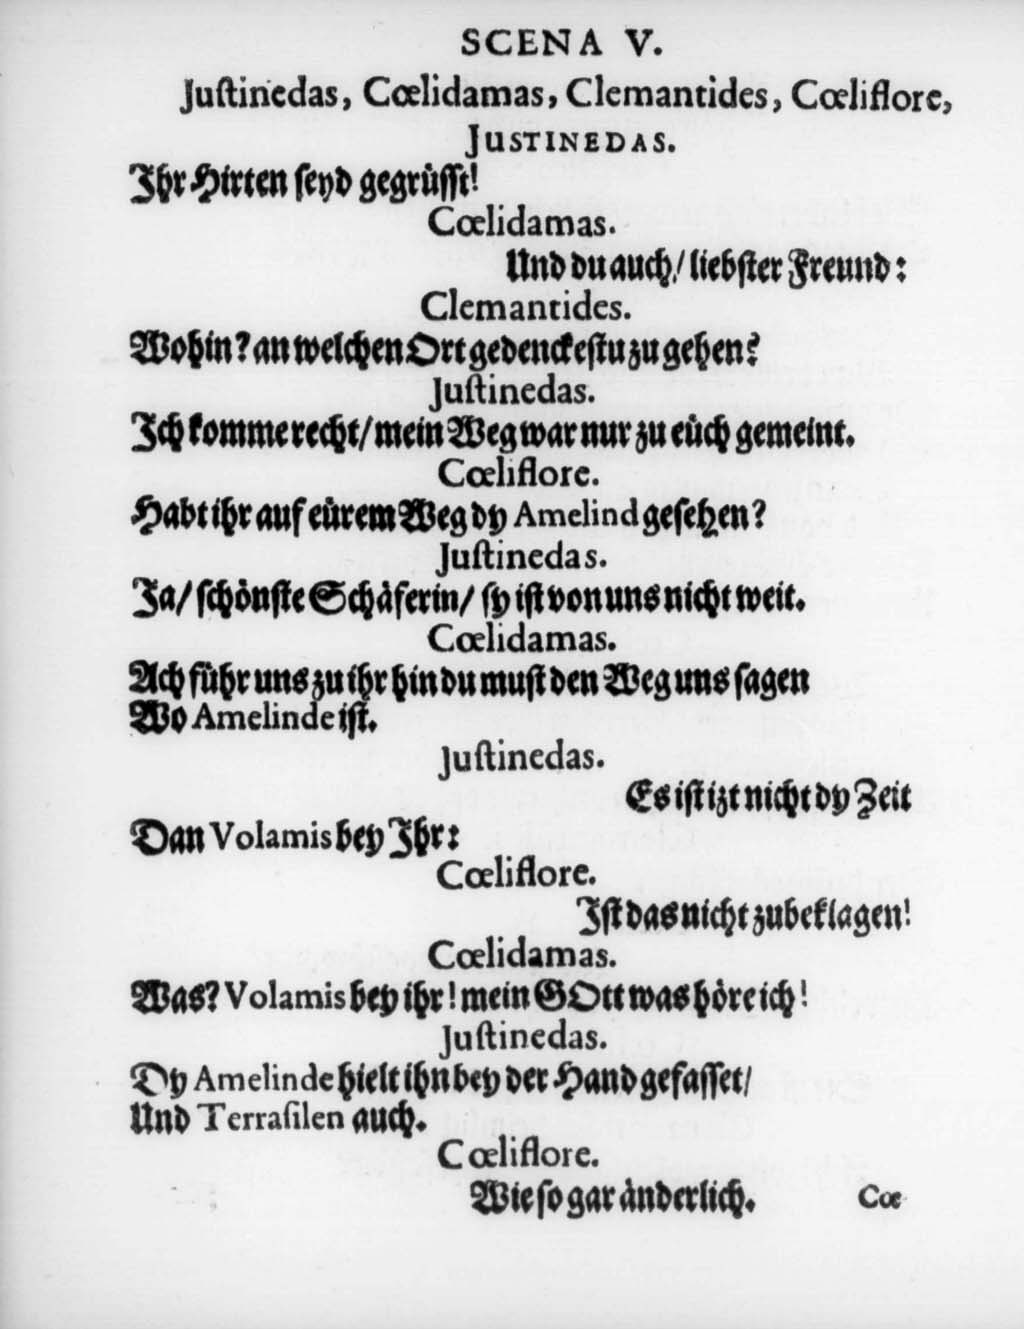 SCENA V.
Juſtinedas, Cœlidamas, Clemantides, Cœliflore,
JUSTINEDAS.
Ihr Hirten ſeyd gegrüſſt!
Cœlidamas.
Und du auch/ liebſter Freund:
Clemantides.
Wohin? an welchen Ort gedenckeſtu zu gehen?
Juſtinedas.
Ich komme recht/ mein Weg war nur zu eüch gemeint.
Cœliflore.
Habt ihr auf eürem Weg dy Amelind geſehen?
Juſtinedas.
Ja/ ſchönſte Schäferin/ ſy iſt von uns nicht weit.
Cœlidamas.
Ach führ uns zu ihr hin du muſt den Weg uns ſagen
Wo Amelinde iſt.
Juſtinedas.
Es iſt izt nicht dy Zeit
Dan Volamis bey Ihr:
Cœliflore.
Iſt das nicht zubeklagen!
Cœlidamas.
Was? Volamis bey ihr! mein GOtt was höre ich!
Juſtinedas.
Dy Amelinde hielt ihn bey der Hand gefaſſet/
Und Terraſilen auch.
Cœliflore.
Wie ſo gar änderlich.
Cœ